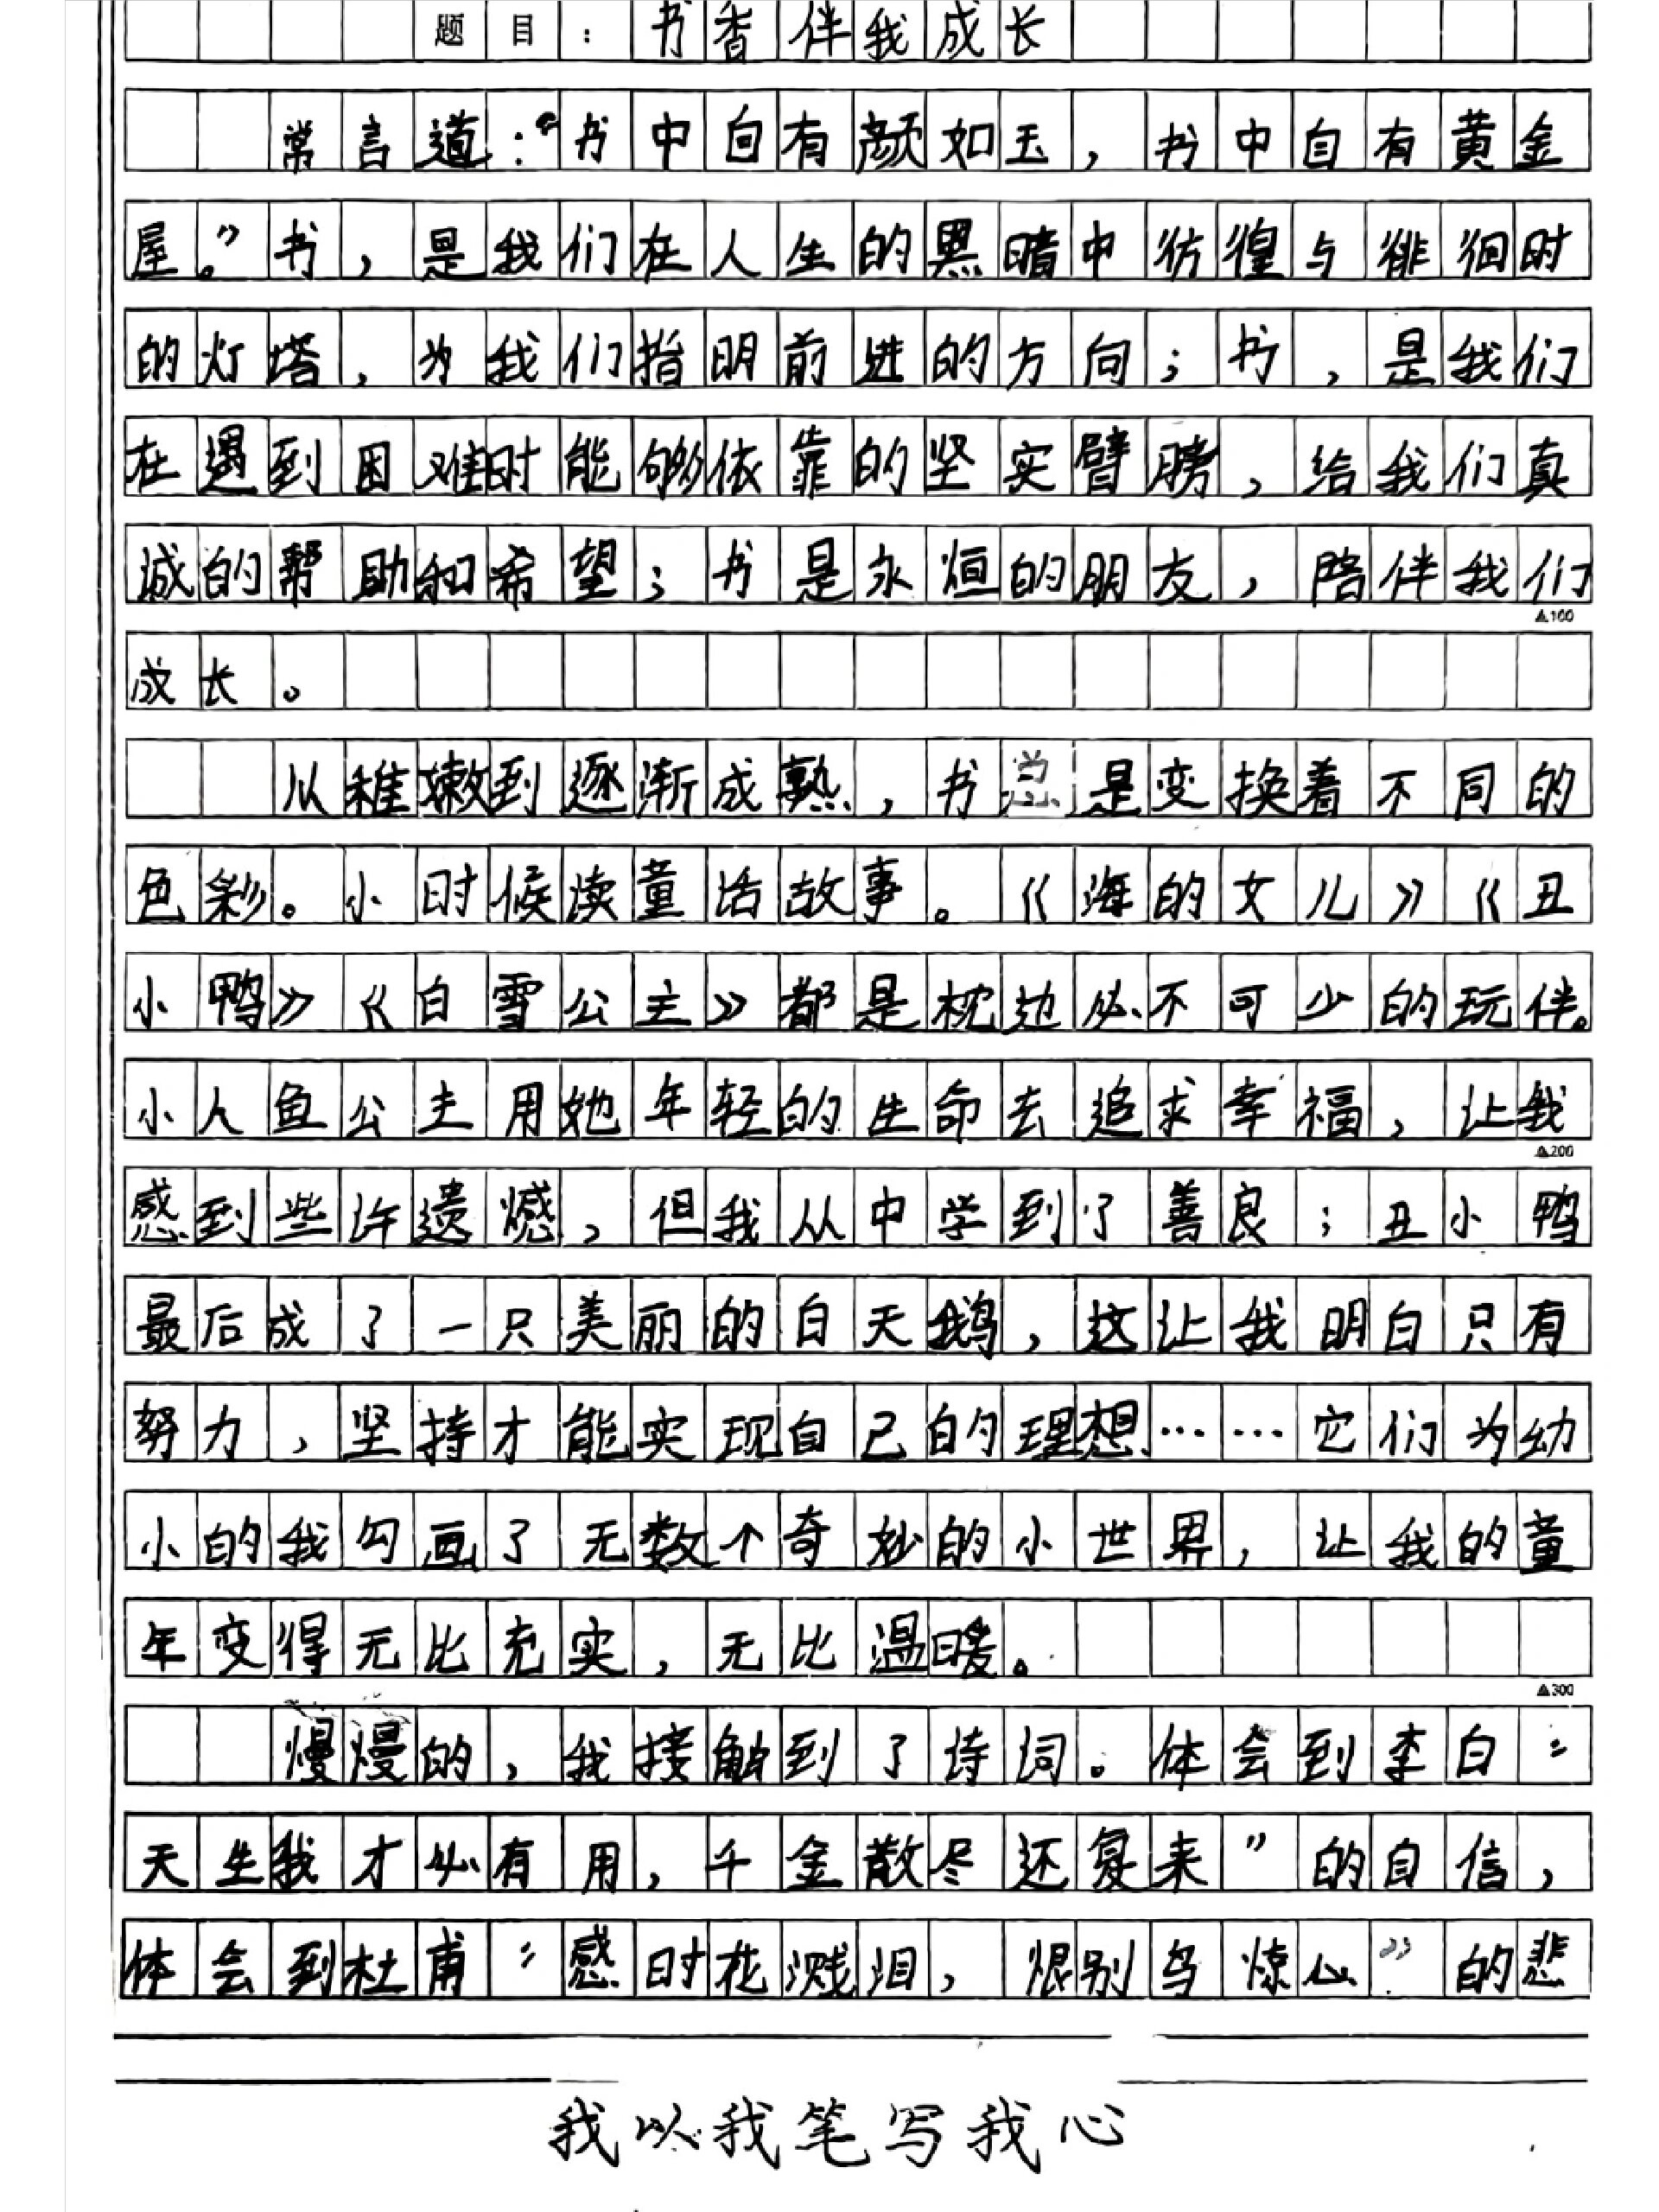 题目：书香伴我成长
常言道：“书中自有颜如玉，书中自有黄金
屋。”书，是我们在人生的黑暗中彷徨与徘徊时
的灯塔，为我们指明前进的方向；书，是我们
在遇到困难时能够依靠的坚实臂膀，给我们真
诚的帮助和希望；书是永恒的朋友，陪伴我们
▲100
成长。
从稚嫩到逐渐成熟，书总是变换着不同的
色彩。小时候读童话故事。《海的女儿》《丑
小鸭》《白雪公主》都是枕边必不可少的玩伴。
小人鱼公主用她年轻的生命去追求幸福，让我
▲200
感到些许遗憾，但我从中学到了善良；丑小鸭
最后成了一只美丽的白天鹅，这让我明白只有
努力，坚持才能实现自己的理想……它们为幼
小的我勾画了无数个奇妙的小世界，让我的童
年变得无比充实，无比温暖。
▲300
慢慢的，我接触到了诗词。体会到李白“
天生我才必有用，千金散尽还复来”的自信，
体会到杜甫“感时花溅泪，恨别鸟惊心”的悲
我以我笔写我心